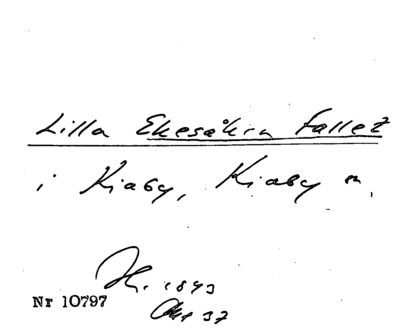 Lilla Ekesåkra fallet
i Kiaby, Kiaby sn.
H. 1843
Nr 10797
37